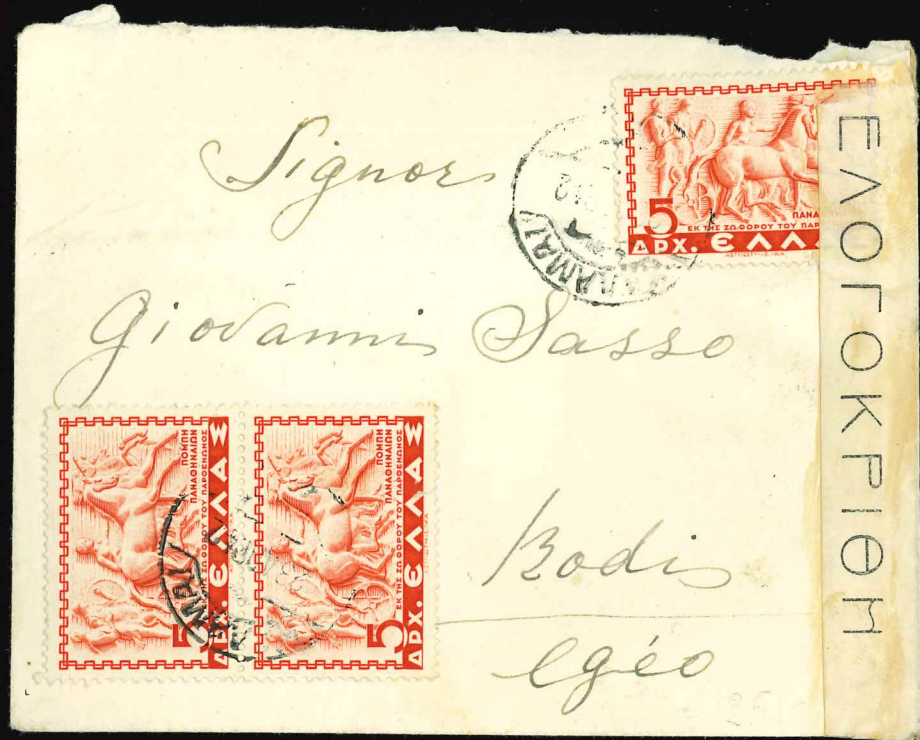 Signor
Giovanni Sasso
Rodi
Egéo
5
ΕΚ ΤΗΣ ΖΩΟΦΟΡΟΥ ΤΟΥ
ΔΡΧ. ΕΛΛ
ΕΛΟΓΟΚΡΙΘΗ
ΠΟΜΠΗ
ΠΑΝΑΘΗΝΑΙΩΝ
ΕΚ ΤΗΣ ΖΩΟΦΟΡΟΥ ΤΟΥ ΠΑΡΘΕΝΩΝΟΣ
5
ΔΡΧ. ΕΛΛΑΣ
ΠΟΜΠΗ
ΠΑΝΑΘΗΝΑΙΩΝ
ΕΚ ΤΗΣ ΖΩΟΦΟΡΟΥ ΤΟΥ ΠΑΡΘΕΝΩΝΟΣ
5
ΔΡΧ. ΕΛΛΑΣ